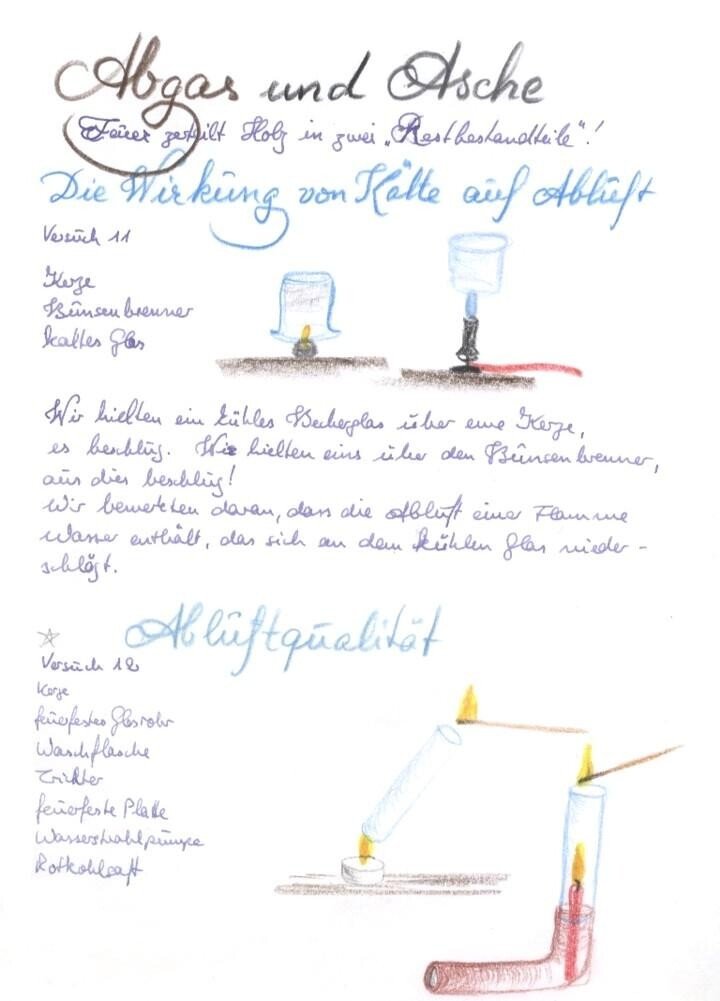 Abgas und Asche
Feuer zerteilt Holz in zwei „Restbestandteile"!
Die Wirkung von Kälte auf Abluft
Versuch 11
Kerze
Bunsenbrenner
kaltes Glas
Wir hielten ein kühles Becherglas über eine Kerze,
es beschlug. Wir hielten eins über den Bunsenbrenner,
aus dies beschlug!
Wir bemerkten daran, dass die Abluft einer Flamme
Wasser enthält, das sich an dem kühlen Glas nieder-
schlägt.
Abluftqualität
Versuch 12
Kerze
feuerfestes Glasrohr
Waschflasche
Trichter
feuerfeste Platte
Wasserstrahlpumpe
Rotkohlsaft